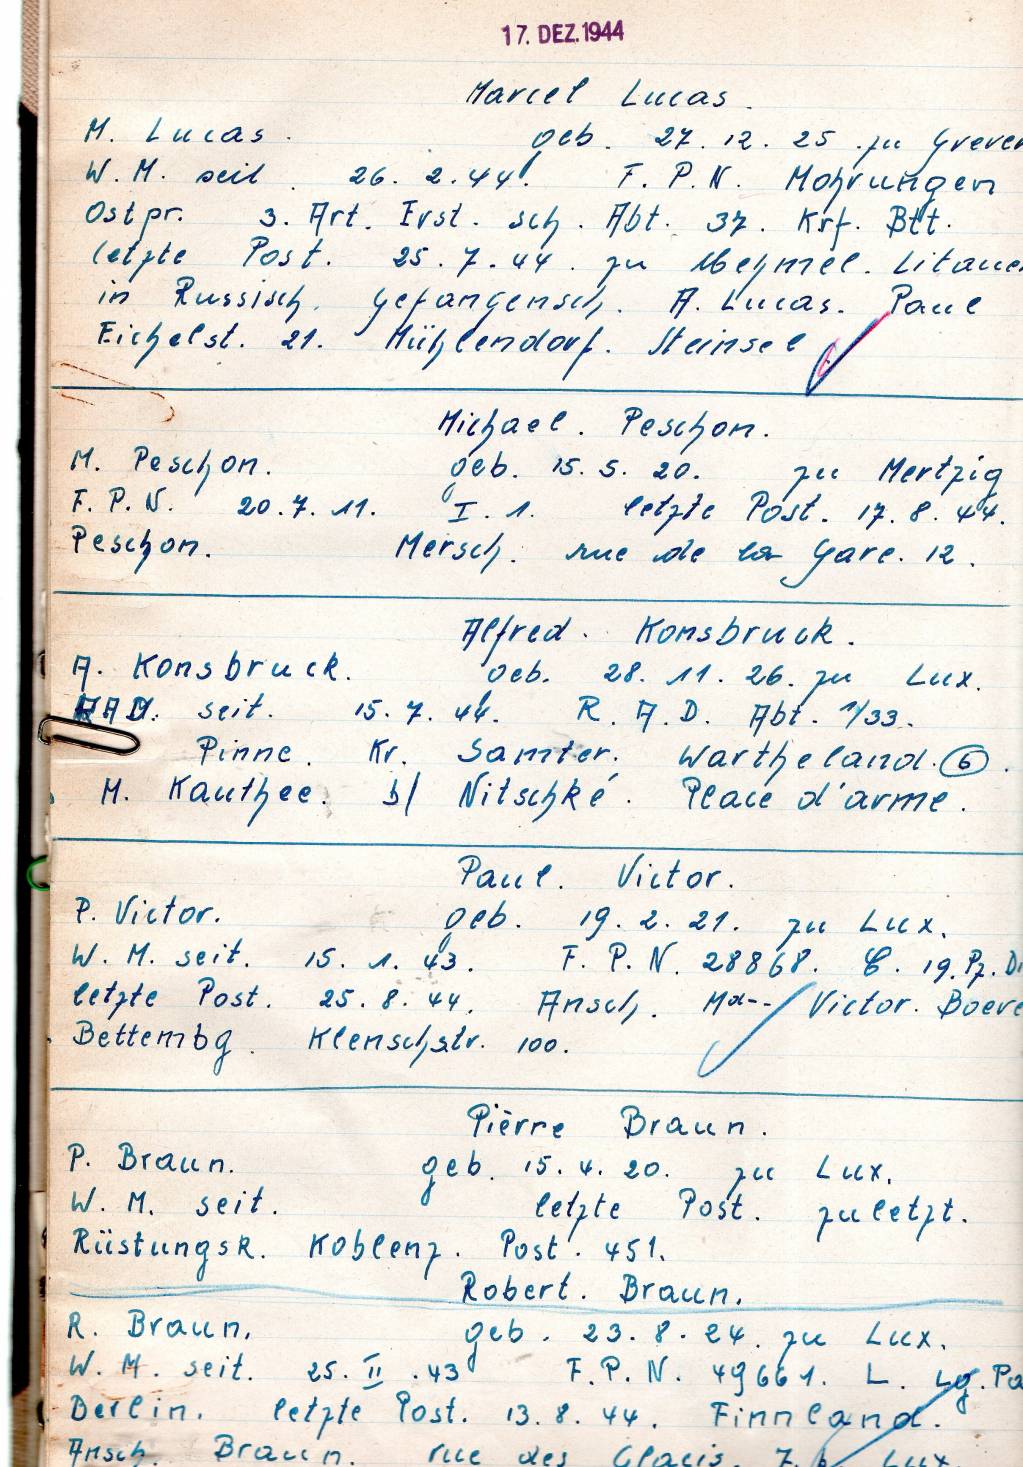 17. DEZ. 1944
Marcel Lucas.
M. Lucas. geb. 27. 12. 25 zu Greven
W. M. seit 26. 2. 44. F. P. N. Mohrungen
Ostpr. 3. Art. Erst. sch. Abt. 37. Krf. Btt.
letzte Post. 25. 7. 44. zu Litauen
in Russisch. Gefangensch. A. Lucas. Paul
Eichelst. 21. Mühlendorf. Steinsel
Michael. Peschon.
M. Peschon. geb. 15. 5. 20. zu Mertzig
F. P. N. 20. 7. 11. I. 1. letzte Post. 17. 8. 44.
Peschon. Mersch. rue de la Gare. 12.
Alfred. Konsbruck.
A. Konsbruck. geb. 28. 11. 26. zu Lux.
RAD. seit. 15. 7. 44. R. A. D. Abt. 1/33.
Pinne. Kr. Samter. Wartheland. (6).
M. Kauthee. b/ Nitschké. Place d'arme.
Paul. Victor.
P. Victor. geb. 19. 2. 21. zu Lux.
W. M. seit. 15. 1. 43. F. P. N. 28868. C. 19. Pz. Di
letzte Post. 25. 8. 44. Ansch. Victor. Boeve
Bettembg. Klenschstr. 100.
Pièrre Braun.
P. Braun. geb. 15. 4. 20. zu Lux.
W. M. seit. letzte Post. zuletzt.
Rüstungsk. Koblenz. Post. 451.
Robert. Braun.
R. Braun. geb. 23. 8. 24. zu Lux.
W. M. seit. 25. II. 43 F. P. N. 49661. L. Lg. Pa
Berlin. letzte Post. 13. 8. 44. Finnland.
Ansch. Braun. rue des Glacis. 7. Lux.